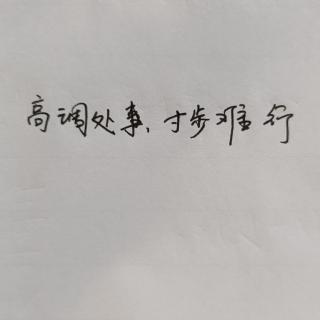 高调处事、寸步难行